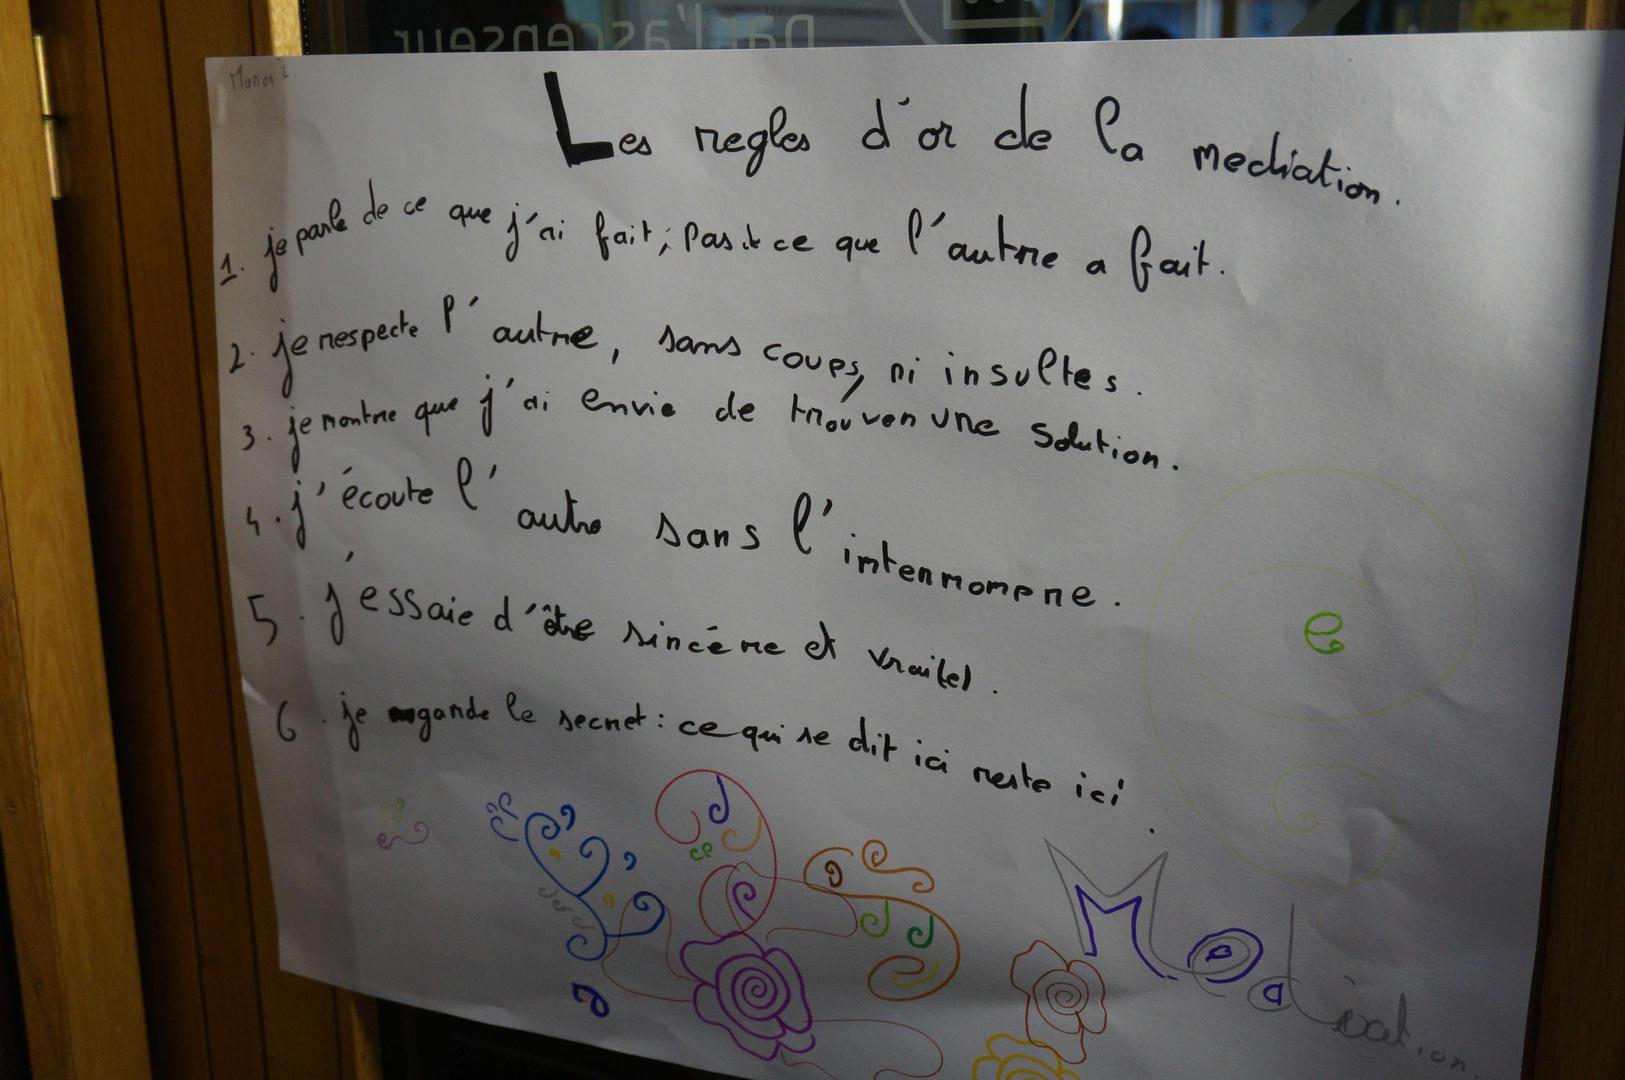 par l'ascenseur
Manon 2
Les regles d'or de la mediation.
1. je parle de ce que j'ai fait, pas de ce que l'autre a fait.
2. je respecte l'autre, sans coups, ni insultes.
3. je montre que j'ai envie de trouver une solution.
4. j'écoute l'autre sans l'interrompre.
5. j'essaie d'être sincére et vrai(e).
6. je garde le secret : ce qui se dit ici reste ici.
Mediation.